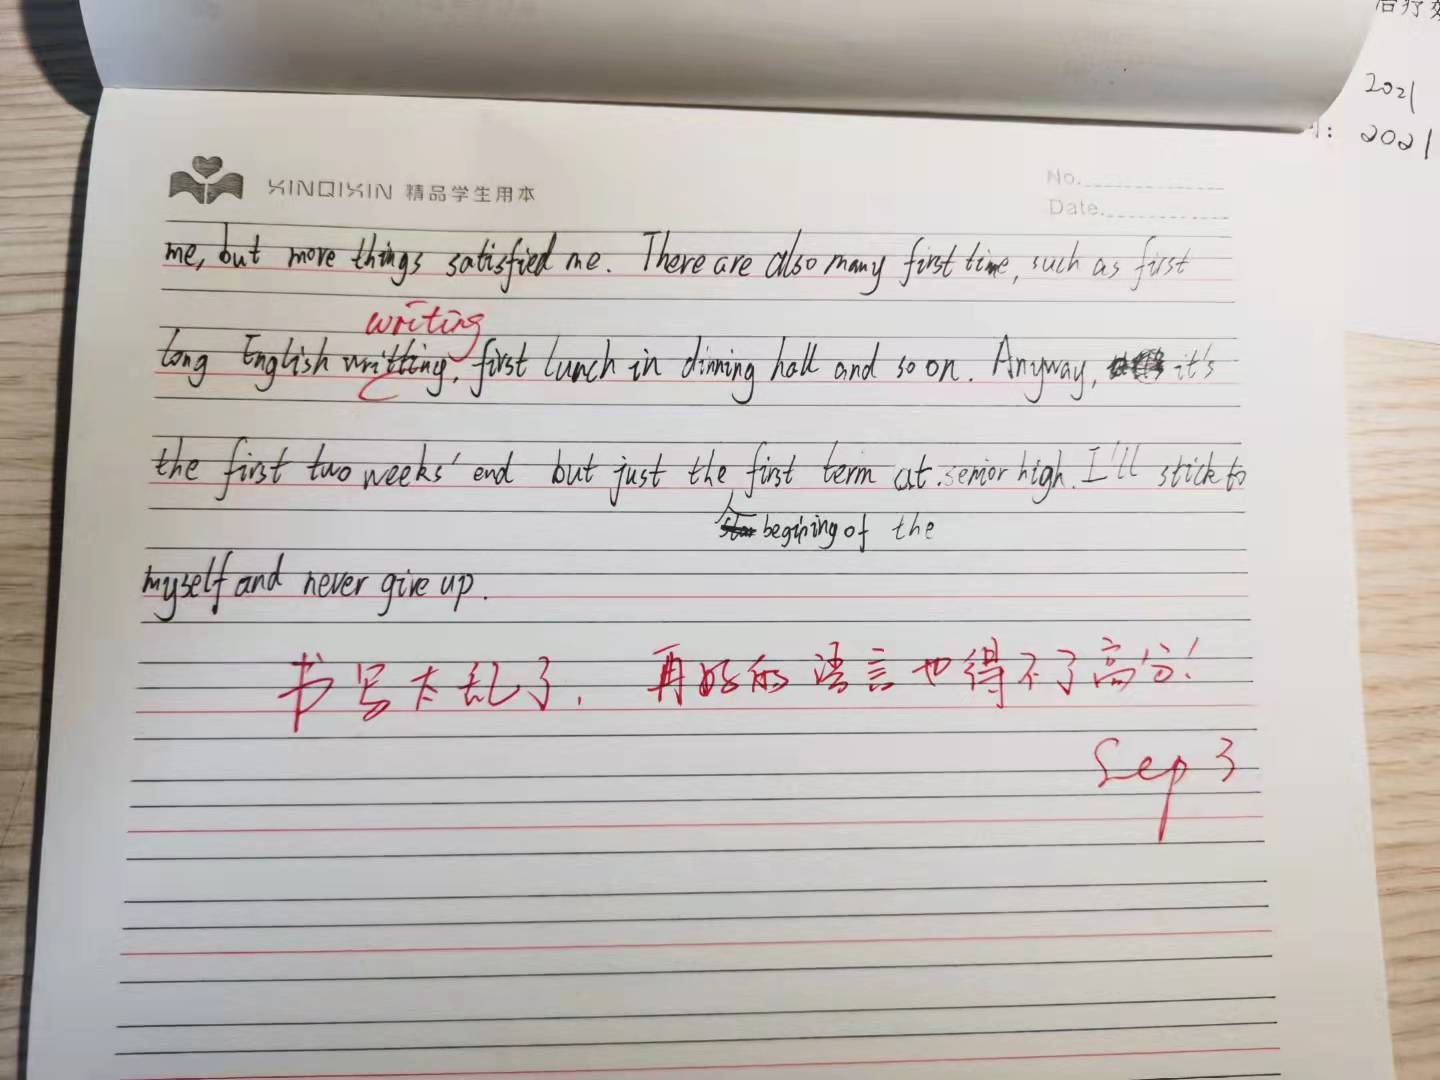 治疗
2021
: 2021
XINQIXIN 精品学生用本
No.
Date.
me, but more things satisfied me. There are also many first time, such as first
writing
long English writting, first lunch in dinning hall and so on. Anyway, it's
the first two weeks' end but just the first term at senior high. I'll stick to
begining of the
myself and never give up.
书写太乱了. 再好的语言也得不了高分!
Sep 3